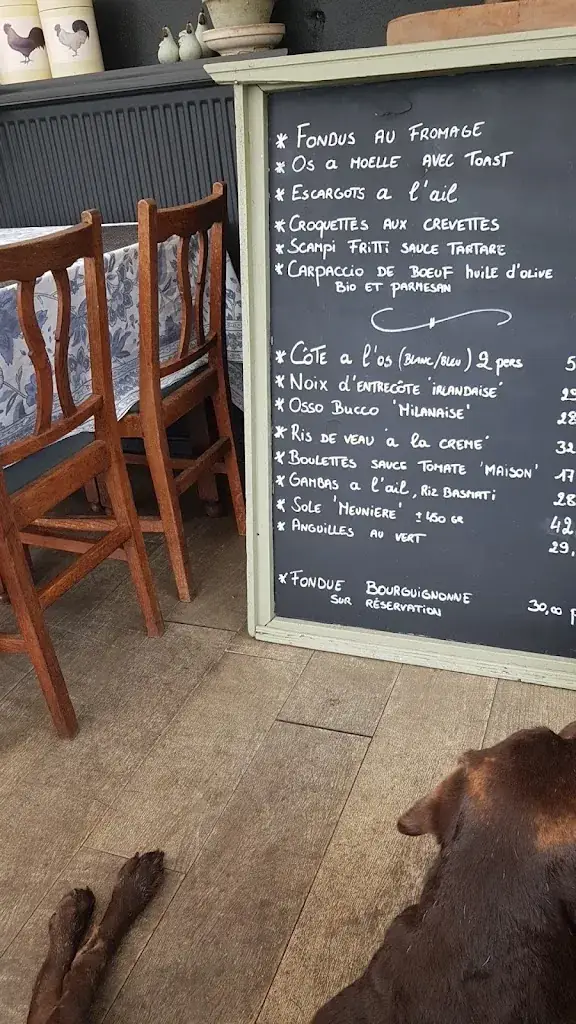 * FONDUS AU FROMAGE
* OS A MOELLE AVEC TOAST
* ESCARGOTS A L'AIL
* CROQUETTES AUX CREVETTES
* SCAMPI FRITTI SAUCE TARTARE
* CARPACCIO DE BOEUF HUILE D'OLIVE
BIO ET PARMESAN
* CÔTE A L'OS (BLANC/BLEU) 2 PERS 5
* NOIX D'ENTRECÔTE 'IRLANDAISE' 29
* OSSO BUCCO 'MILANAISE' 28
* RIS DE VEAU 'A LA CREME' 32
* BOULETTES SAUCE TOMATE 'MAISON' 17
* GAMBAS A L'AIL, RIZ BASMATI 28
* SOLE 'MEUNIERE' ± 450 GR 42,
* ANGUILLES AU VERT 29,
* FONDUE BOURGUIGNONNE 30,00 P
SUR RÉSERVATION